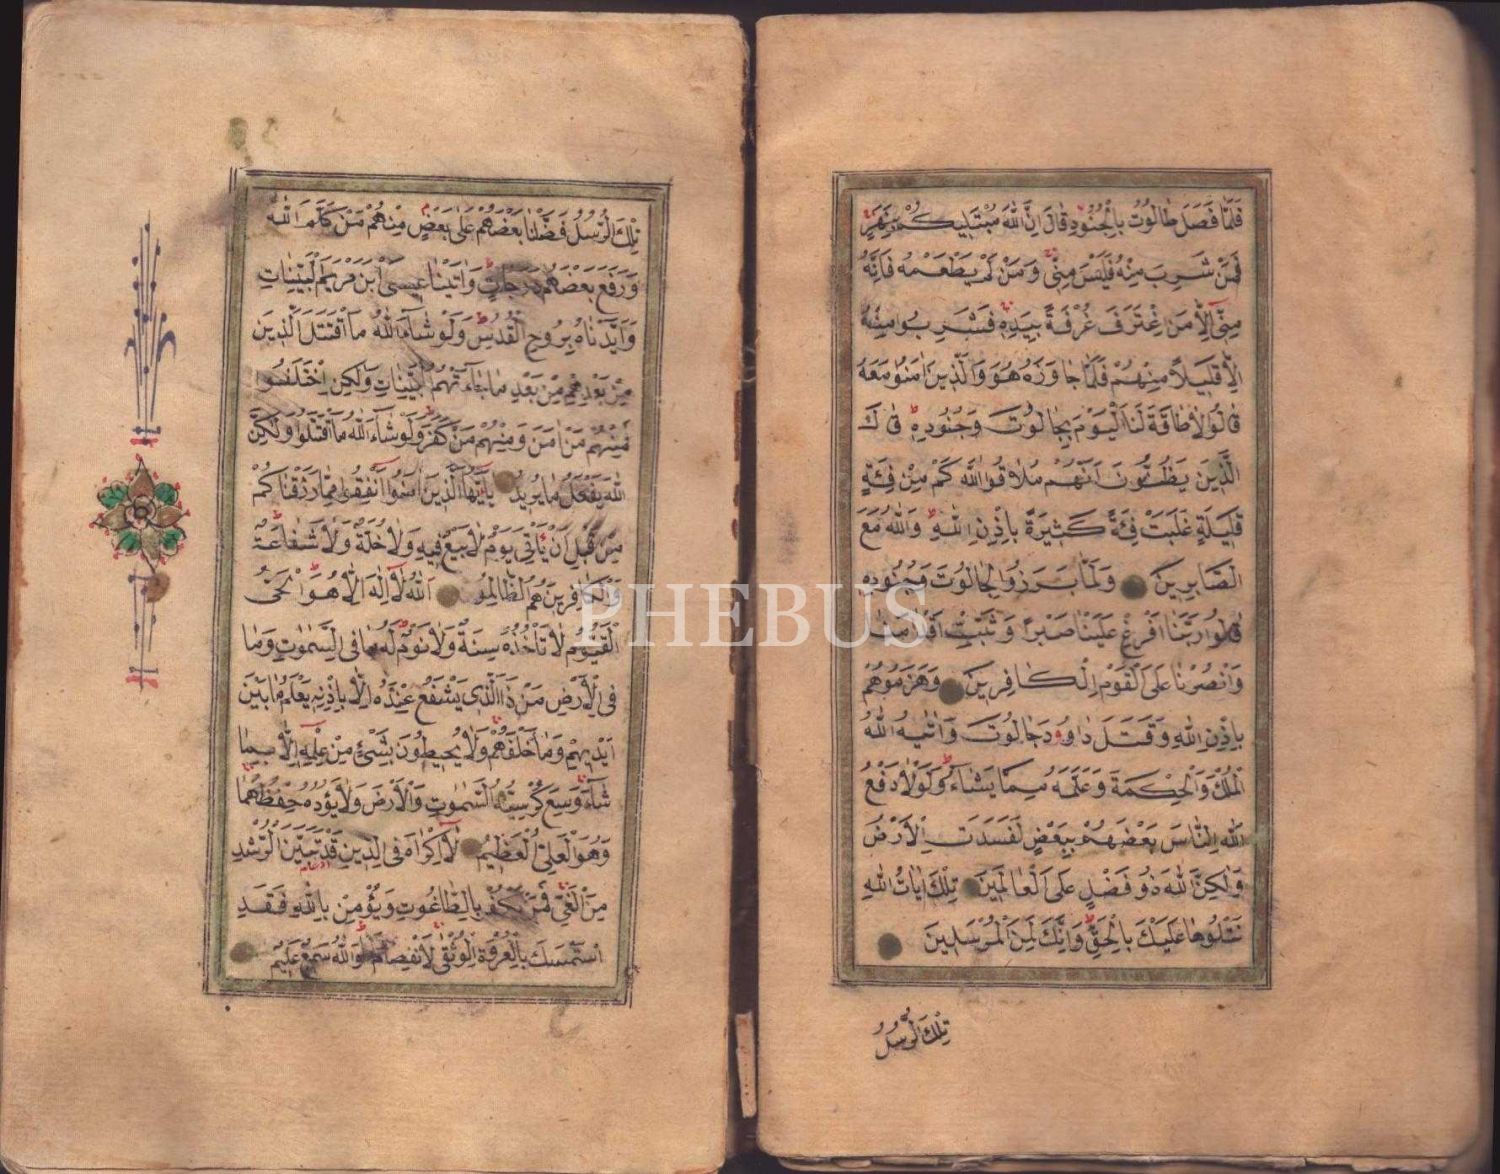 فَلَمَّا فَصَلَ طَالُوتُ بِالْجُنُودِ قَالَ اِنَّ اللّٰهَ مُبْتَلِيكُمْ بِنَهَرٍ
فَمَنْ شَرِبَ مِنْهُ فَلَيْسَ مِنِّى وَمَنْ لَمْ يَطْعَمْهُ فَاِنَّهُ
مِنِّى اِلَّا مَنِ اغْتَرَفَ غُرْفَةً بِيَدِهِ فَشَرِبُوا مِنْهُ
اِلَّا قَلِيلاً مِنْهُمْ فَلَمَّا جَاوَزَهُ هُوَ وَالَّذِينَ اٰمَنُوا مَعَهُ
قَالُوا لَا طَاقَةَ لَنَا الْيَوْمَ بِجَالُوتَ وَجُنُودِهِ قَالَ
الَّذِينَ يَظُنُّونَ اَنَّهُمْ مُلَاقُوا اللّٰهِ كَمْ مِنْ فِئَةٍ
قَلِيلَةٍ غَلَبَتْ فِئَةً كَثِيرَةً بِاِذْنِ اللّٰهِ وَاللّٰهُ مَعَ
الصَّابِرِينَ وَلَمَّا بَرَزُوا لِجَالُوتَ وَجُنُودِهِ
قَالُوا رَبَّنَا اَفْرِغْ عَلَيْنَا صَبْراً وَثَبِّتْ اَقْدَامَنَا
وَانْصُرْنَا عَلَى الْقَوْمِ الْكَافِرِينَ فَهَزَمُوهُمْ
بِاِذْنِ اللّٰهِ وَقَتَلَ دَاوُودُ جَالُوتَ وَاٰتٰيهُ اللّٰهُ
الْمُلْكَ وَالْحِكْمَةَ وَعَلَّمَهُ مِمَّا يَشَاءُ وَلَوْلَا دَفْعُ
اللّٰهِ النَّاسَ بَعْضَهُمْ بِبَعْضٍ لَفَسَدَتِ الْاَرْضُ
وَلٰكِنَّ اللّٰهَ ذُو فَضْلٍ عَلَى الْعَالَمِينَ تِلْكَ اٰيَاتُ اللّٰهِ
نَتْلُوهَا عَلَيْكَ بِالْحَقِّ وَاِنَّكَ لَمِنَ الْمُرْسَلِينَ
تِلْكَ الرُّسُلُ
تِلْكَ الرُّسُلُ فَضَّلْنَا بَعْضَهُمْ عَلٰى بَعْضٍ مِنْهُمْ مَنْ كَلَّمَ اللّٰهُ
وَرَفَعَ بَعْضَهُمْ دَرَجَاتٍ وَاٰتَيْنَا عِيسَى ابْنَ مَرْيَمَ الْبَيِّنَاتِ
وَاَيَّدْنَاهُ بِرُوحِ الْقُدُسِ وَلَوْ شَاءَ اللّٰهُ مَا اقْتَتَلَ الَّذِينَ
مِنْ بَعْدِهِمْ مِنْ بَعْدِ مَا جَاءَتْهُمُ الْبَيِّنَاتُ وَلٰكِنِ اخْتَلَفُوا
فَمِنْهُمْ مَنْ اٰمَنَ وَمِنْهُمْ مَنْ كَفَرَ وَلَوْ شَاءَ اللّٰهُ مَا اقْتَتَلُوا وَلٰكِنَّ
اللّٰهَ يَفْعَلُ مَا يُرِيدُ يَا اَيُّهَا الَّذِينَ اٰمَنُوا اَنْفِقُوا مِمَّا رَزَقْنَاكُمْ
مِنْ قَبْلِ اَنْ يَأْتِىَ يَوْمٌ لَا بَيْعٌ فِيهِ وَلَا خُلَّةٌ وَلَا شَفَاعَةٌ
وَالْكَافِرُونَ هُمُ الظَّالِمُونَ اَللّٰهُ لَا اِلٰهَ اِلَّا هُوَ الْحَىُّ
الْقَيُّومُ لَا تَأْخُذُهُ سِنَةٌ وَلَا نَوْمٌ لَهُ مَا فِى السَّمٰوَاتِ وَمَا
فِى الْاَرْضِ مَنْ ذَا الَّذِى يَشْفَعُ عِنْدَهُ اِلَّا بِاِذْنِهِ يَعْلَمُ مَا بَيْنَ
اَيْدِيهِمْ وَمَا خَلْفَهُمْ وَلَا يُحِيطُونَ بِشَىْءٍ مِنْ عِلْمِهِ اِلَّا بِمَا
شَاءَ وَسِعَ كُرْسِيُّهُ السَّمٰوَاتِ وَالْاَرْضَ وَلَا يَؤُدُهُ حِفْظُهُمَا
وَهُوَ الْعَلِىُّ الْعَظِيمُ لَا اِكْرَاهَ فِى الدِّينِ قَدْ تَبَيَّنَ الرُّشْدُ
مِنَ الْغَىِّ فَمَنْ يَكْفُرْ بِالطَّاغُوتِ وَيُؤْمِنْ بِاللّٰهِ فَقَدِ
اسْتَمْسَكَ بِالْعُرْوَةِ الْوُثْقٰى لَا انْفِصَامَ لَهَا وَاللّٰهُ سَمِيعٌ عَلِيمٌ
PHEBUS